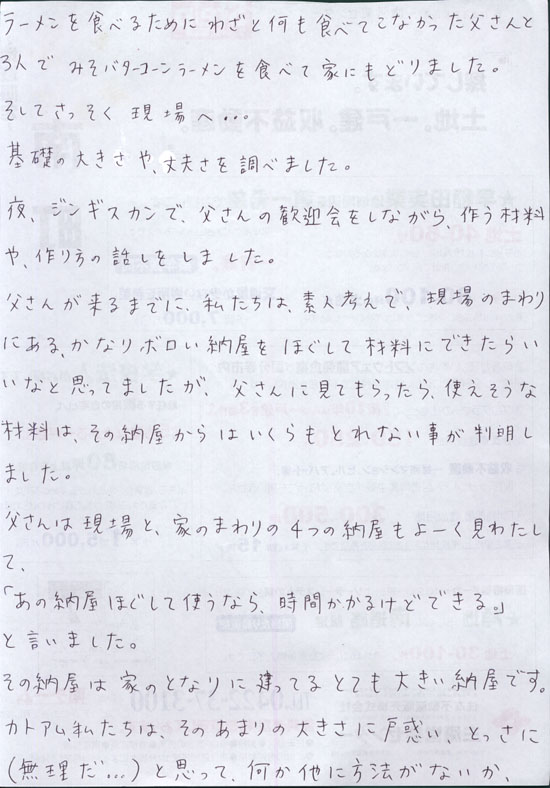 ラーメンを食べるためにわざと何も食べてこなかった父さんと
3人で みそバターコーンラーメンを食べて家にもどりました。
そしてさっそく 現場へ…。
基礎の大きさや、丈夫さを調べました。
夜、ジンギスカンで、父さんの歓迎会をしながら 作う材料
や、作り方の話しをしました。
父さんが来るまでに、私たちは、素人考えで、現場のまわり
にある、かなりボロい納屋をほぐして材料にできたらい
いなと思ってましたが、父さんに見てもらったら、使えそうな
材料は、その納屋からはいくらもとれない事が判明し
ました。
父さんは現場と、家のまわりの4つの納屋もよーく見わたし
て、
「あの納屋ほぐして使うなら、時間かかるけどできる。」
と言いました。
その納屋は家のとなりに建ってるとても大きい納屋です。
カトアム私たちは、そのあまりの大きさに戸惑い とっさに
(無理だ…)と思って、何か他に方法がないか、